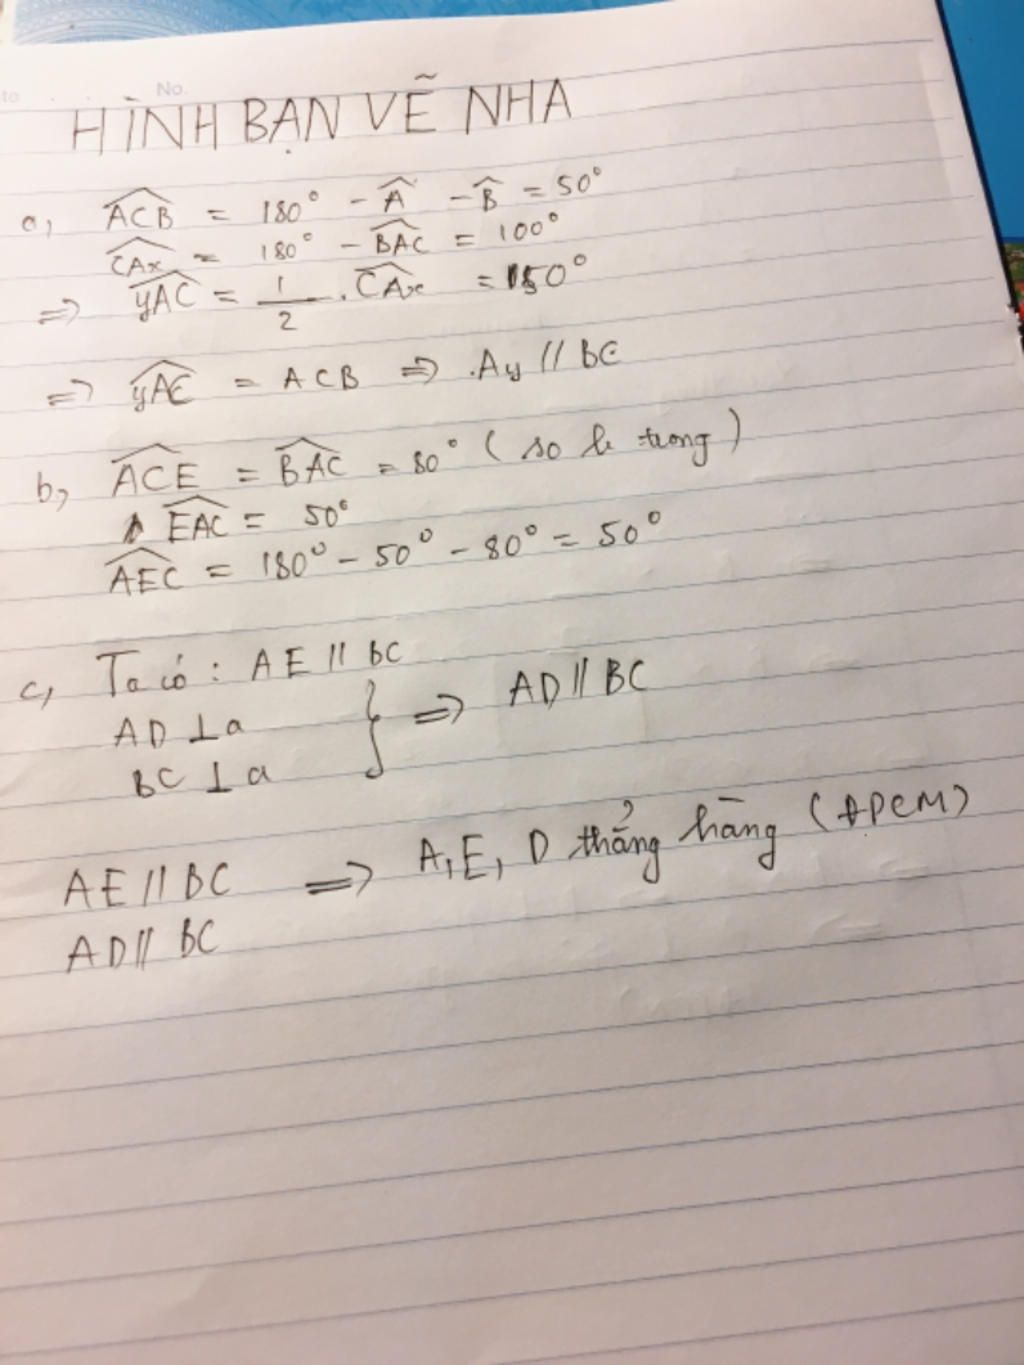 No.
HÌNH BẠN VẼ NHA
a, ACB = 180° - A - B = 50°
CAx = 180° - BAC = 100°
=> yAC = 1/2 . CAx = 50°
=> yAC = ACB => Ay // BC
b, ACE = BAC = 80° (so le trong)
EAC = 50°
AEC = 180° - 50° - 80° = 50°
c, Ta có : AE // BC
AD ⊥ a
BC ⊥ a } => AD // BC
AE // BC => A, E, D thẳng hàng (ĐPCM)
AD // BC